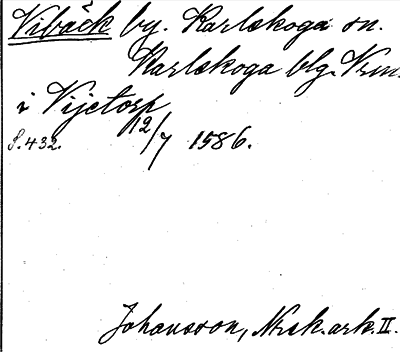 Vibäck by. Karlskoga sn.
Karlskoga blg. Vrml.
i Vijetorp
S. 432. 12/7 1586.
Johansson, Nrsk. ark. II.